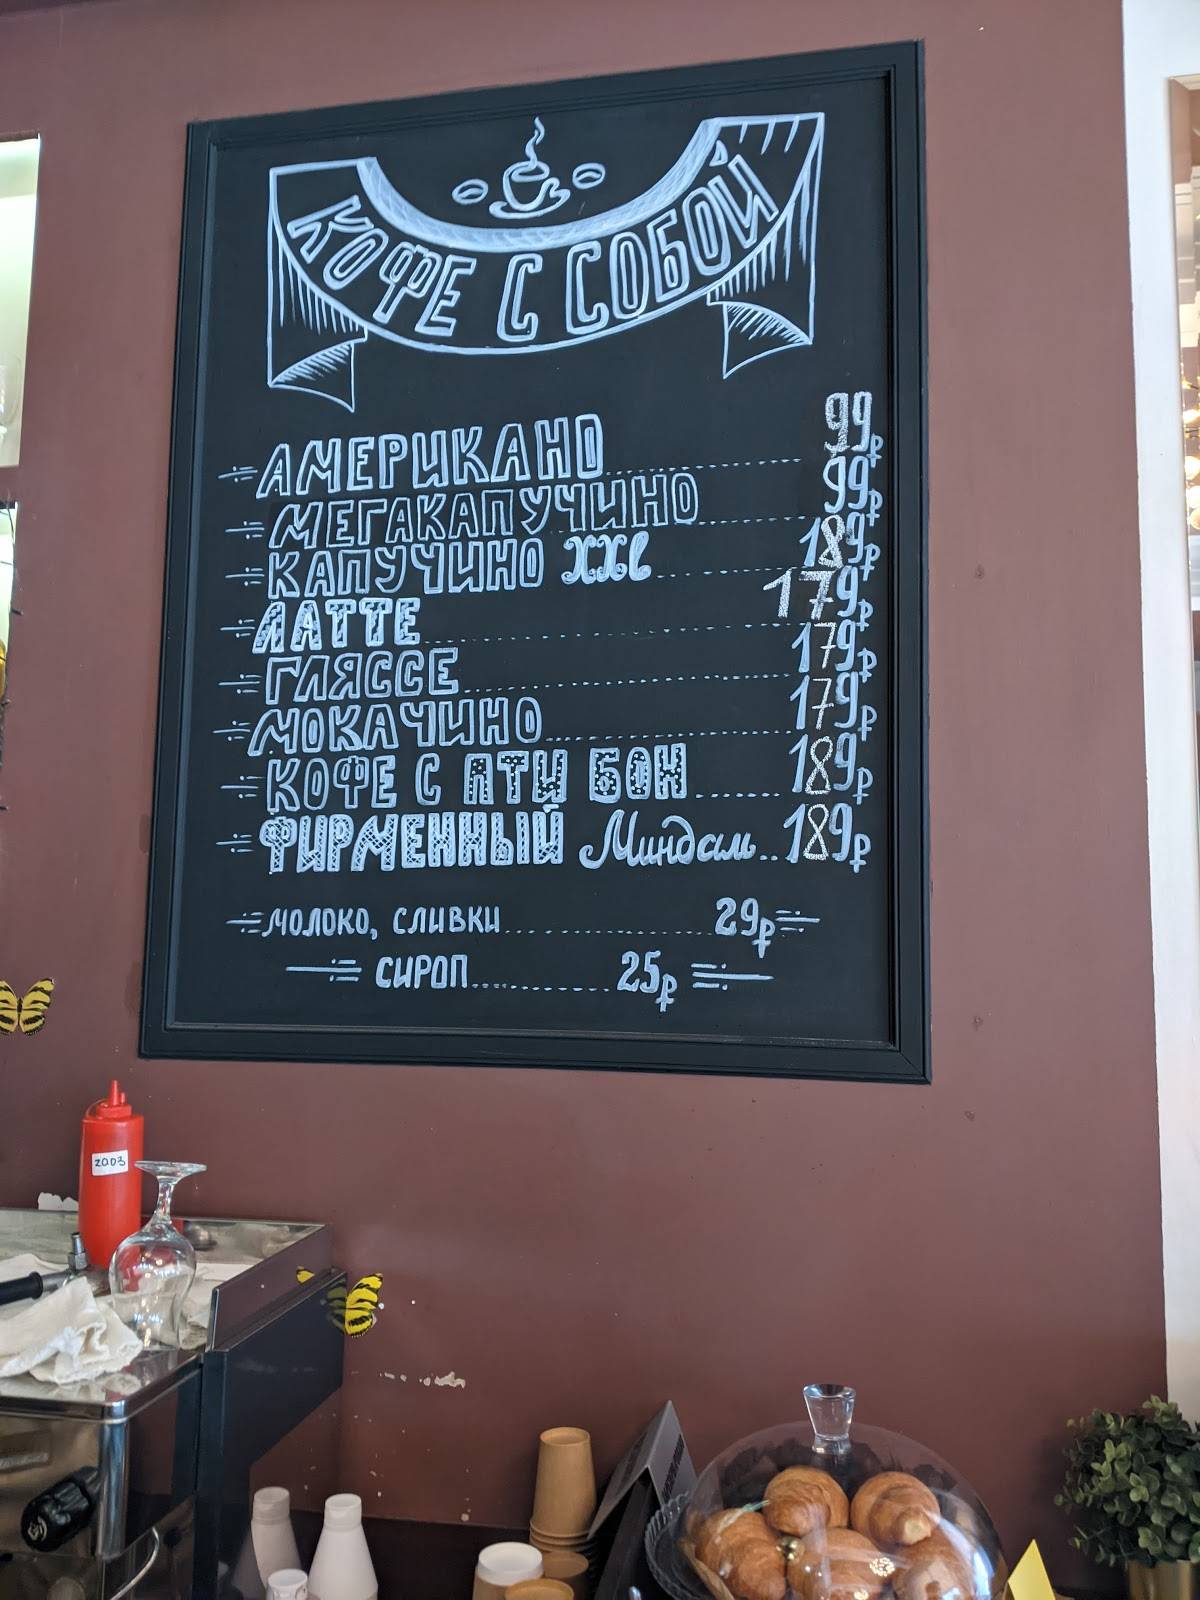 КОФЕ С СОБОЙ
АМЕРИКАНО 99₽
МЕГАКАПУЧИНО 99₽
КАПУЧИНО XXL 189₽
ЛАТТЕ 179₽
ГЛЯССЕ 179₽
МОКАЧИНО 179₽
КОФЕ С ПТИ БОН 189₽
ФИРМЕННЫЙ Миндаль 189₽
МОЛОКО, СЛИВКИ 29₽
СИРОП 25₽
20.03